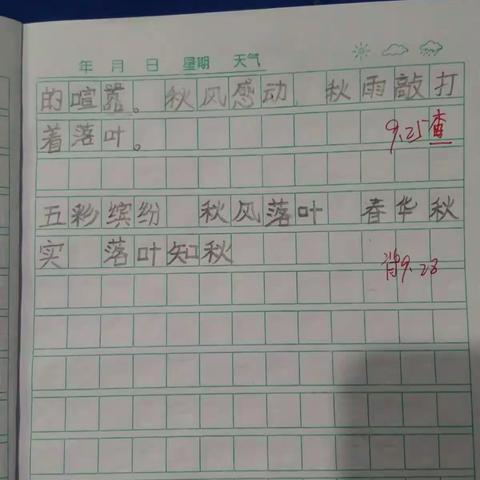 年 月 日 星期 天气
的喧嚣。秋风感动 秋雨敲打
着落叶。
9.25查
五彩缤纷 秋风落叶 春华秋
实 落叶知秋
9.28